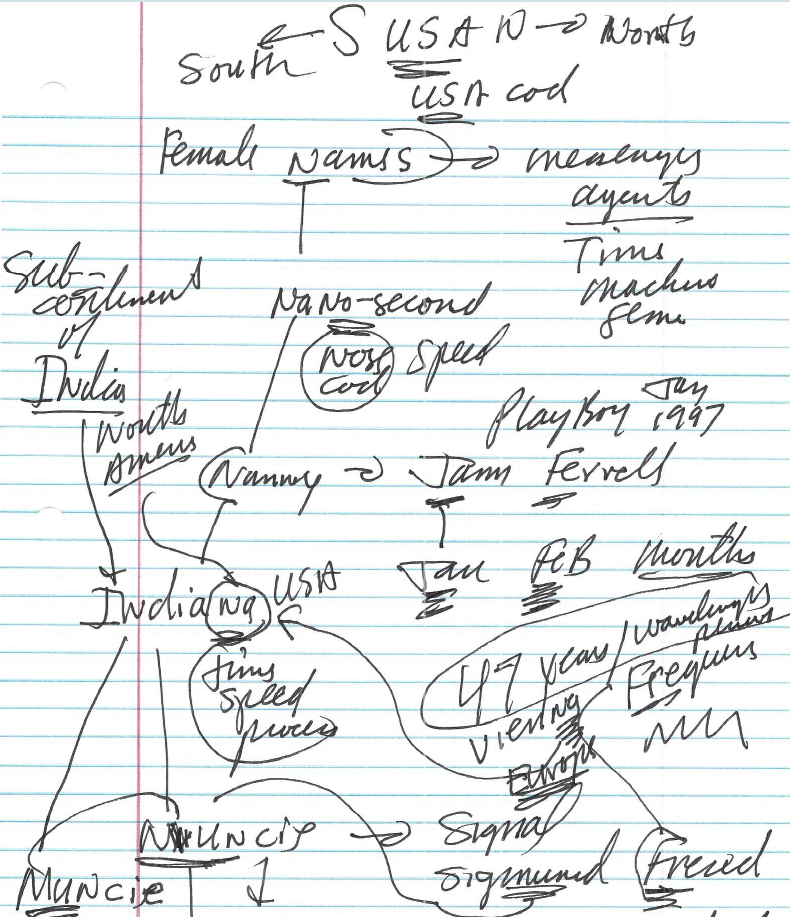 South ← S USA N → North
USA cod
Female Names → messengers
agents
Time
machine
Sub-
continent
of
India
Nano-second
Nose
cod
speed
PlayBoy Jan
1997
North
Nanny → Jami Ferrell
Jan FEB months
Indiana USA
time
speed
process
47 years / wavelengths
Viening
Frequens
Europe
Nuncie → Signal
Muncie
Sigmund Freud